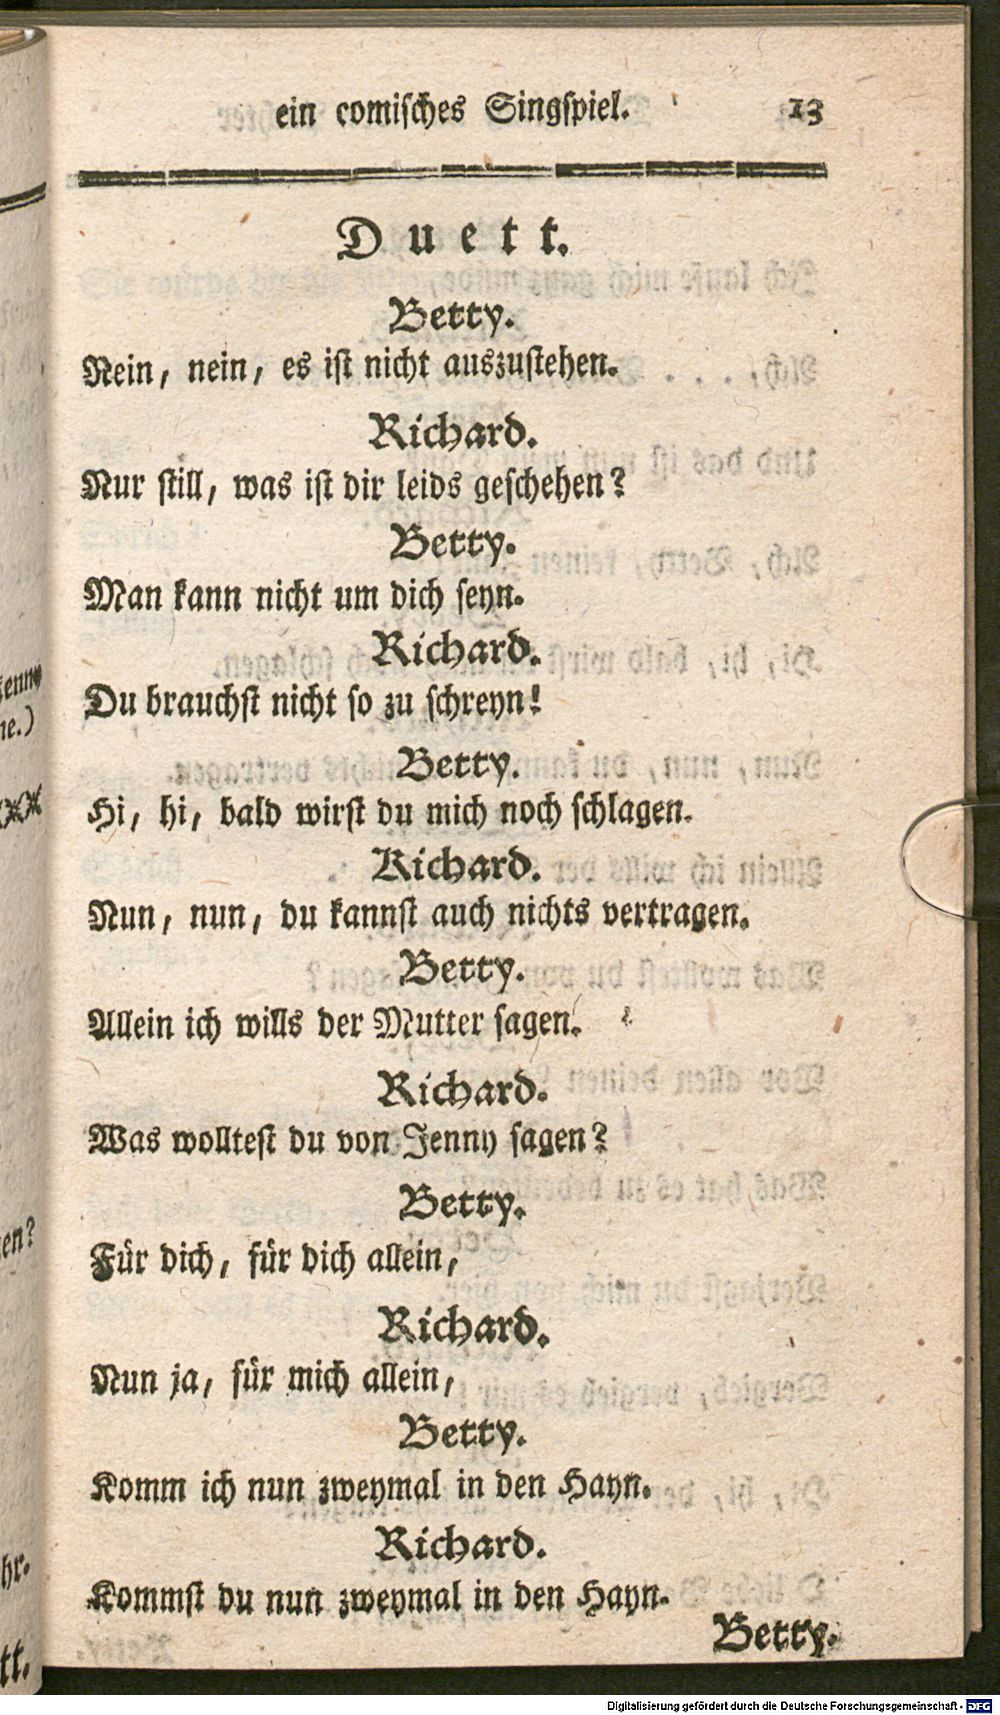 ein comisches Singspiel. 13
Duett.
Betty.
Nein, nein, es ist nicht auszustehen.
Richard.
Nur still, was ist dir leids geschehen?
Betty.
Man kann nicht um dich seyn.
Richard.
Du brauchst nicht so zu schreyn!
Betty.
Hi, hi, bald wirst du mich noch schlagen.
Richard.
Nun, nun, du kannst auch nichts vertragen.
Betty.
Allein ich wills der Mutter sagen.
Richard.
Was wolltest du von Jenny sagen?
Betty.
Für dich, für dich allein,
Richard.
Nun ja, für mich allein,
Betty.
Komm ich nun zweymal in den Hayn.
Richard.
Kommst du nun zweymal in den Hayn.
Betty.
Digitalisierung gefördert durch die Deutsche Forschungsgemeinschaft - DFG